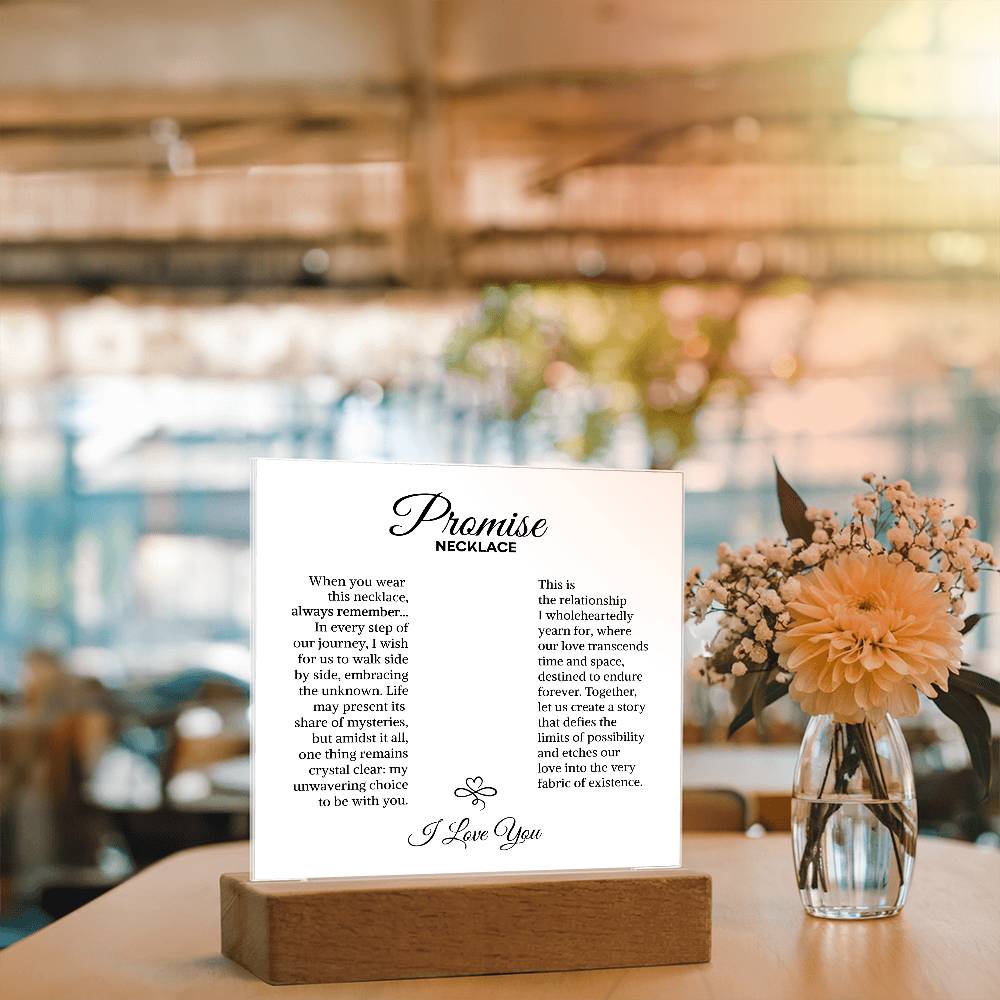 Promise
NECKLACE
When you wear
this necklace,
always remember...
In every step of
our journey, I wish
for us to walk side
by side, embracing
the unknown. Life
may present its
share of mysteries,
but amidst it all,
one thing remains
crystal clear: my
unwavering choice
to be with you.
This is
the relationship
I wholeheartedly
yearn for, where
our love transcends
time and space,
destined to endure
forever. Together,
let us create a story
that defies the
limits of possibility
and etches our
love into the very
fabric of existence.
I Love You